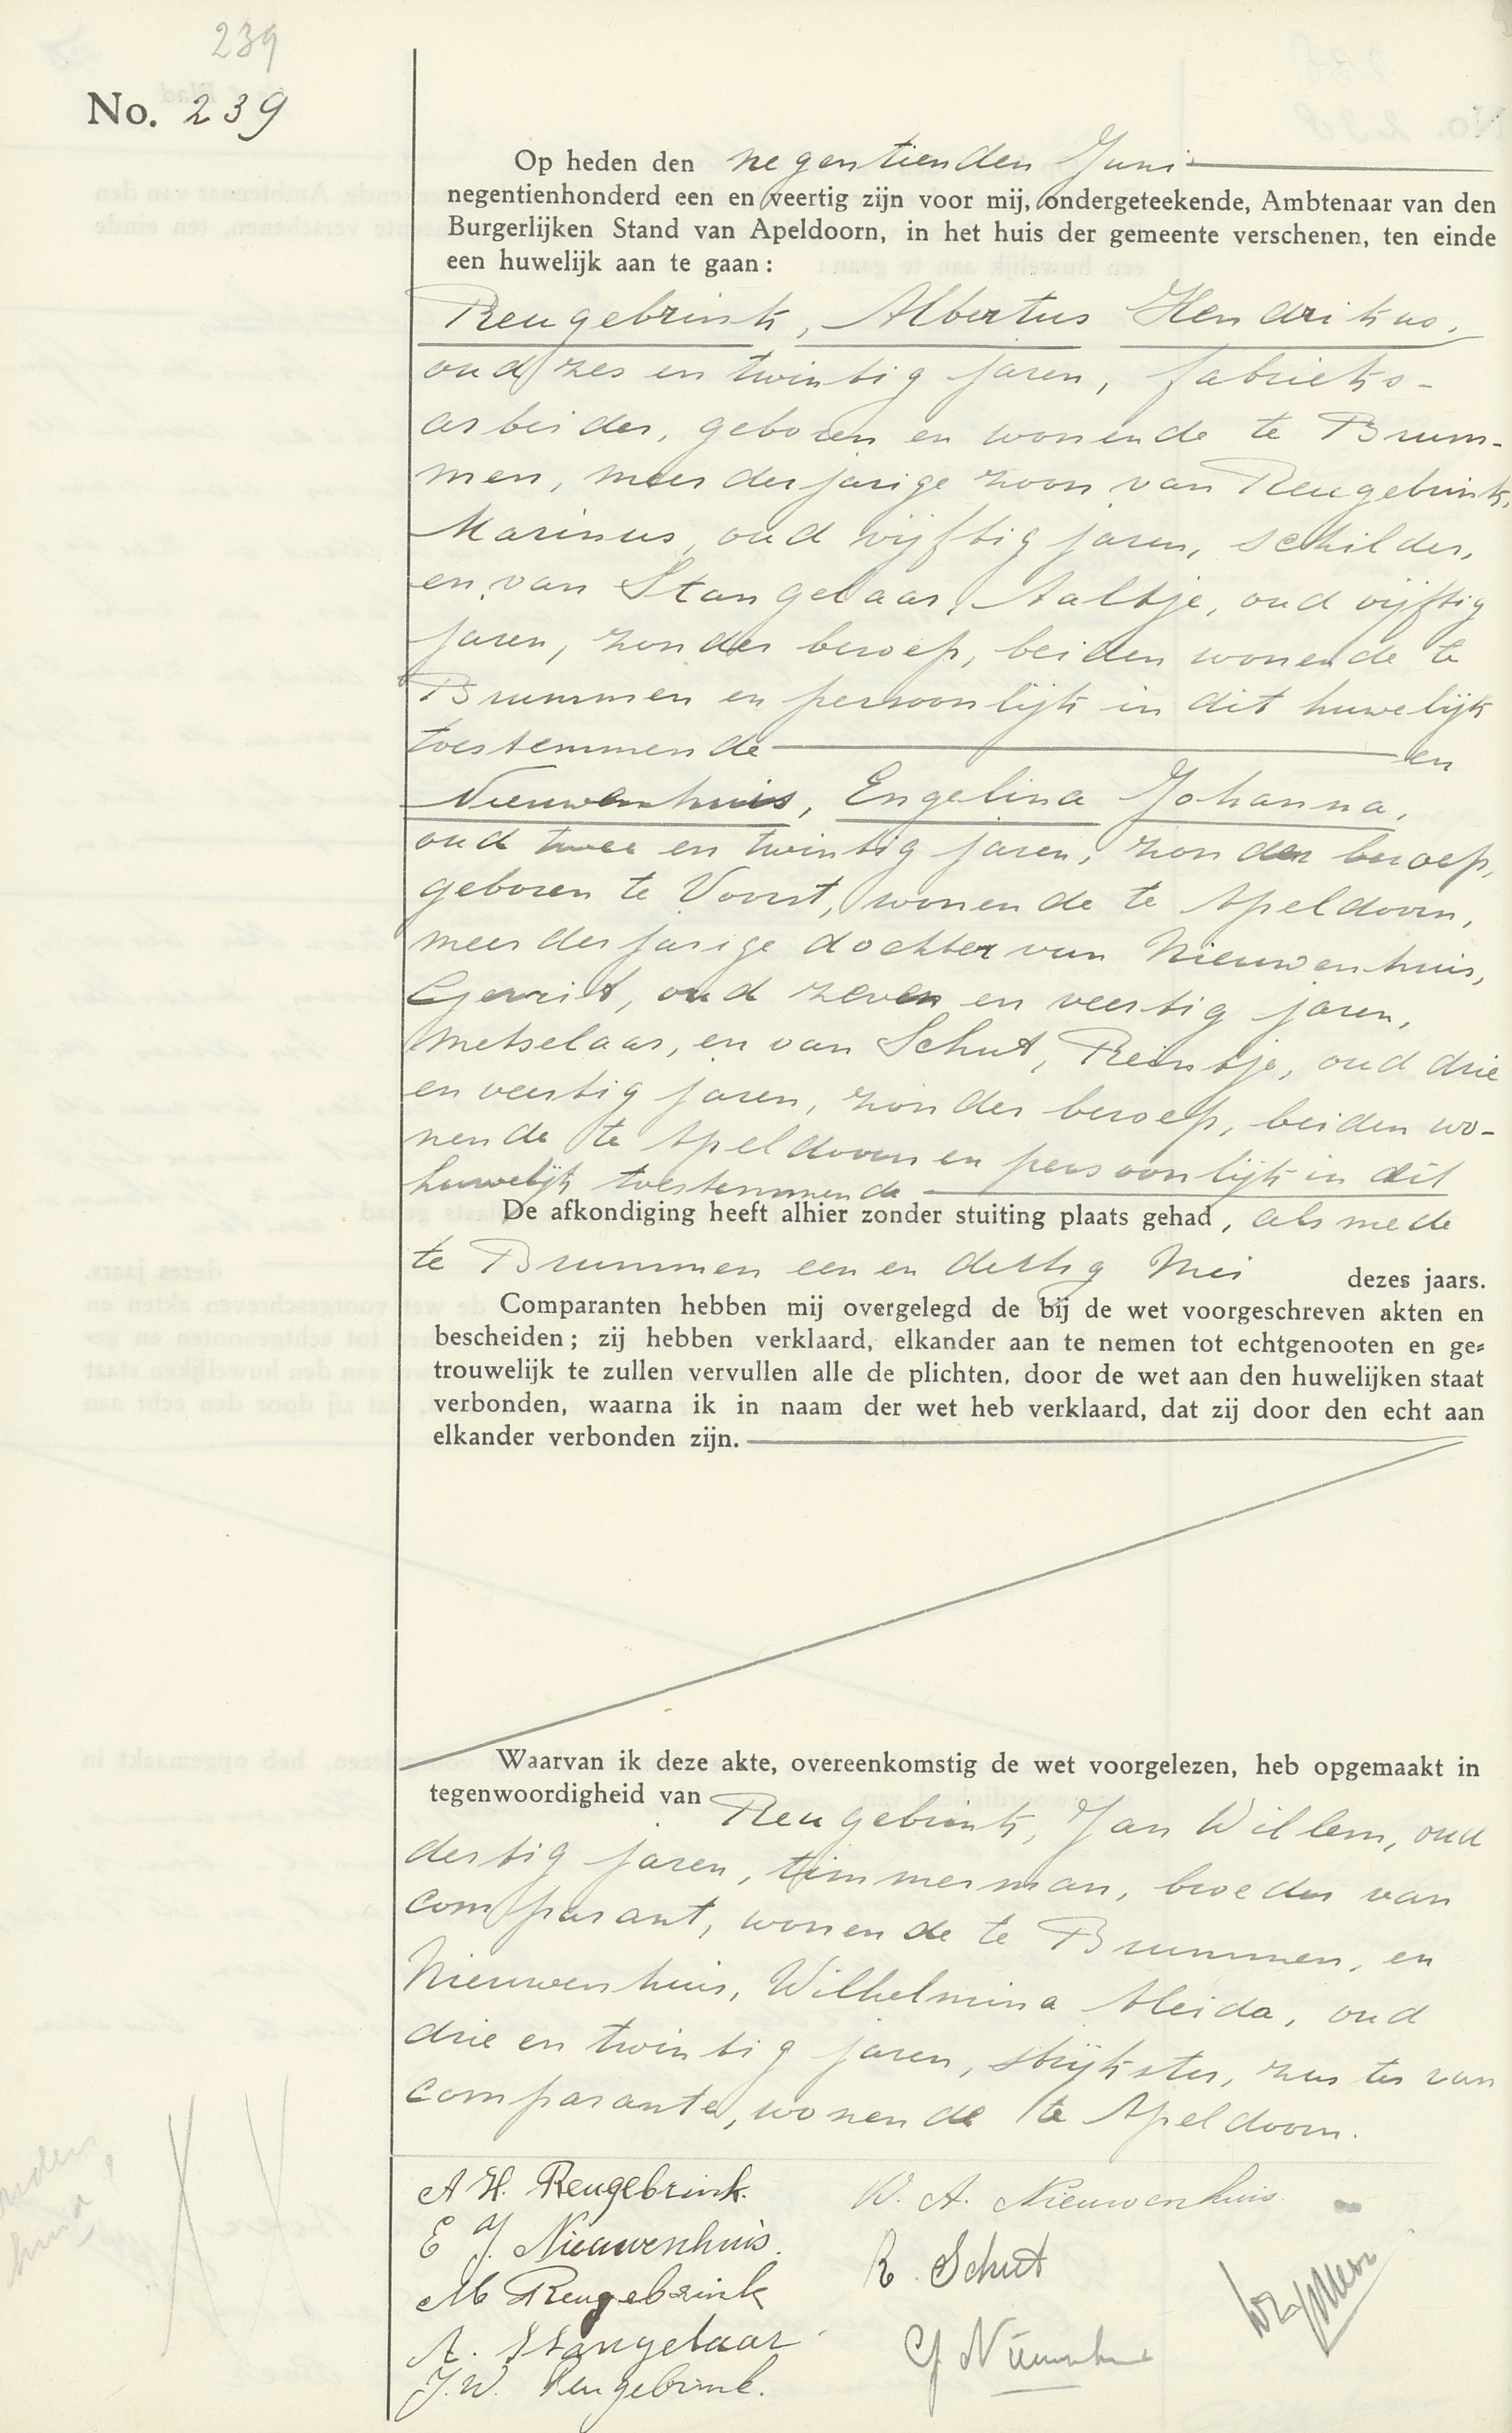 239
No. 239
Op heden den negentienden Juni
negentienhonderd een en veertig zijn voor mij, ondergeteekende, Ambtenaar van den
Burgerlijken Stand van Apeldoorn, in het huis der gemeente verschenen, ten einde
een huwelijk aan te gaan:
Reugebrink, Albertus Hendrikus,
oud zes en twintig jaren, fabrieks-
arbeider, geboren en wonende te Brum-
men, meerderjarige zoon van Reugebrink,
Marinus, oud vijftig jaren, schilder,
en van Stangelaar, Aaltje, oud vijftig
jaren, zonder beroep, beiden wonende te
Brummen en persoonlijk in dit huwelijk
toestemmende en
Nieuwenhuis, Engelina Johanna,
oud twee en twintig jaren, zonder beroep,
geboren te Voorst, wonende te Apeldoorn,
meerderjarige dochter van Nieuwenhuis,
Gerrit, oud zeven en veertig jaren,
metselaar, en van Schut, Reintje, oud drie
en veertig jaren, zonder beroep, beiden wo-
nende te Apeldoorn en persoonlijk in dit
huwelijk toestemmende
De afkondiging heeft alhier zonder stuiting plaats gehad, alsmede
te Brummen een en dertig Mei dezes jaars.
Comparanten hebben mij overgelegd de bij de wet voorgeschreven akten en
bescheiden; zij hebben verklaard, elkander aan te nemen tot echtgenooten en ge-
trouwelijk te zullen vervullen alle de plichten, door de wet aan den huwelijken staat
verbonden, waarna ik in naam der wet heb verklaard, dat zij door den echt aan
elkander verbonden zijn.
Waarvan ik deze akte, overeenkomstig de wet voorgelezen, heb opgemaakt in
tegenwoordigheid van Reugebrink, Jan Willem, oud
dertig jaren, timmerman, broeder van
comparant, wonende te Brummen, en
Nieuwenhuis, Wilhelmina Aleida, oud
drie en twintig jaren, strijkster, zuster van
comparante, wonende te Apeldoorn.
A H. Reugebrink. W. A. Nieuwenhuis
E J. Nieuwenhuis.
M Reugebrink R. Schut
A. Stangelaar
G Nieuwenhuis
J. W. Reugebrink.